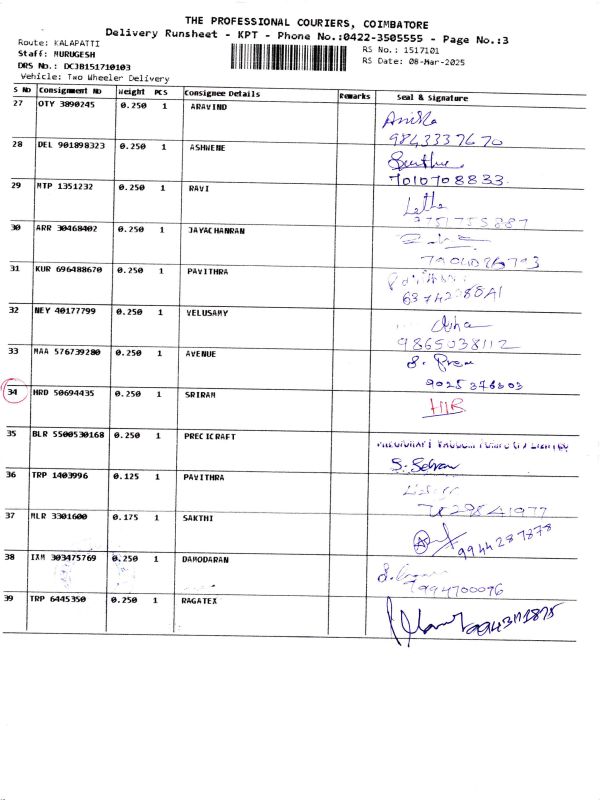 THE PROFESSIONAL COURIERS, COIMBATORE
Delivery Runsheet - KPT - Phone No.:0422-3505555 - Page No.:3
Route: KALAPATTI
RS No.: 1517101
Staff: MURUGESH
RS Date: 08-Mar-2025
DRS No.: DCJB151710103
Vehicle: Two Wheeler Delivery
S No Consignment No Weight PCS Consignee Details Remarks Seal & Signature
27 OTY 3890245 0.250 1 ARAVIND
9843337670
28 DEL 901898323 0.250 1 ASHWENE
7010708833
29 MTP 1351232 0.250 1 RAVI
Letha
30 ARR 30468402 0.250 1 JAYACHANRAN
31 KUR 696488670 0.250 1 PAVITHRA
32 NEY 40177799 0.250 1 VELUSAMY
Usha
9865038112
33 MAA 576739280 0.250 1 AVENUE
9025376303
34 HRD 50694435 0.250 1 SRIRAM
35 BLR 5500530168 0.250 1 PRECICRAFT
S. Selvan
36 TRP 1403996 0.125 1 PAVITHRA
37 MLR 3301600 0.175 1 SAKTHI
9944287878
38 IXM 303475769 0.250 1 DAMODARAN
9994700076
39 TRP 6445350 0.250 1 RAGATEX